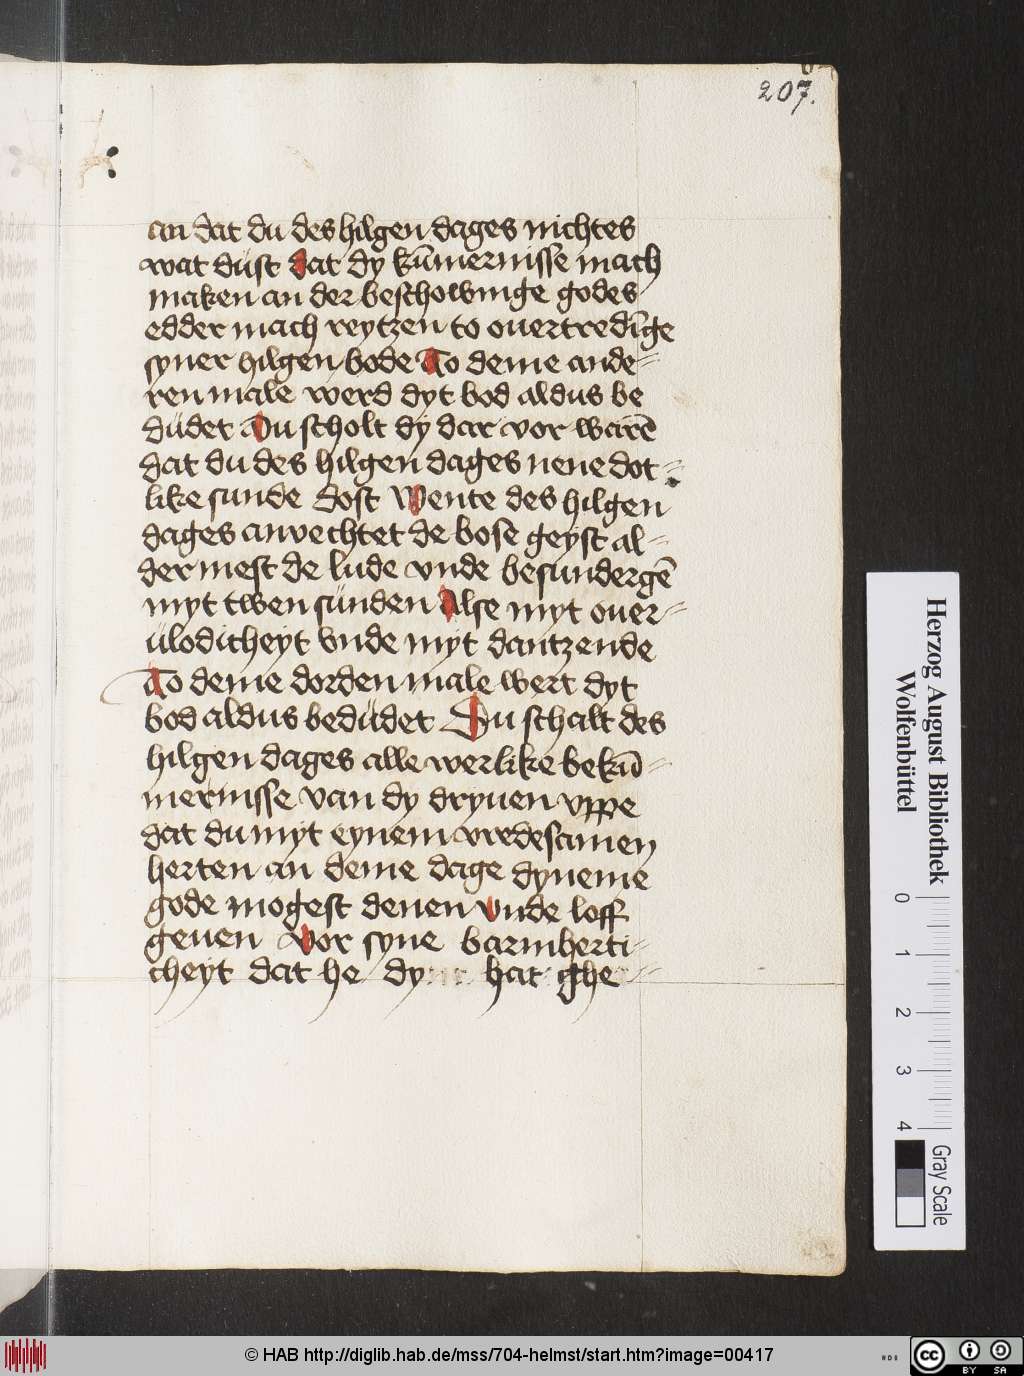 207.
an dat du des hilgen dages nichtes
wat düst dat dy kūmernisse mach
maken an der beschowinge godes
edder mach reytzen to ouertredīge
syner hilgen bode To deme ande-
ren male werd dyt bod aldus be
düdet Du scholt dy dar vor warē
dat du des hilgen dages nene dot-
like sunde dost Wente des hilgen
dages anvechtet de bose geyst al-
der mest de lude vnde besundergē
myt twen sünden Alse myt ouer-
ülodicheyt vnde myt dantzende
To deme dorden male wert dyt
bod aldus bedüdet Du schalt des
hilgen dages alle werlike bekū-
mernisse van dy dryuen vppe
dat du myt eynem vredesamen
herten an deme dage dyneme
gode mogest denen vnde loff
geuen vor syne barmherti-
cheyt dat he dy hat ghe-
Herzog August Bibliothek
Wolfenbüttel
0 1 2 3 4
Gray Scale
© HAB http://diglib.hab.de/mss/704-helmst/start.htm?image=00417
HAB
cc BY SA